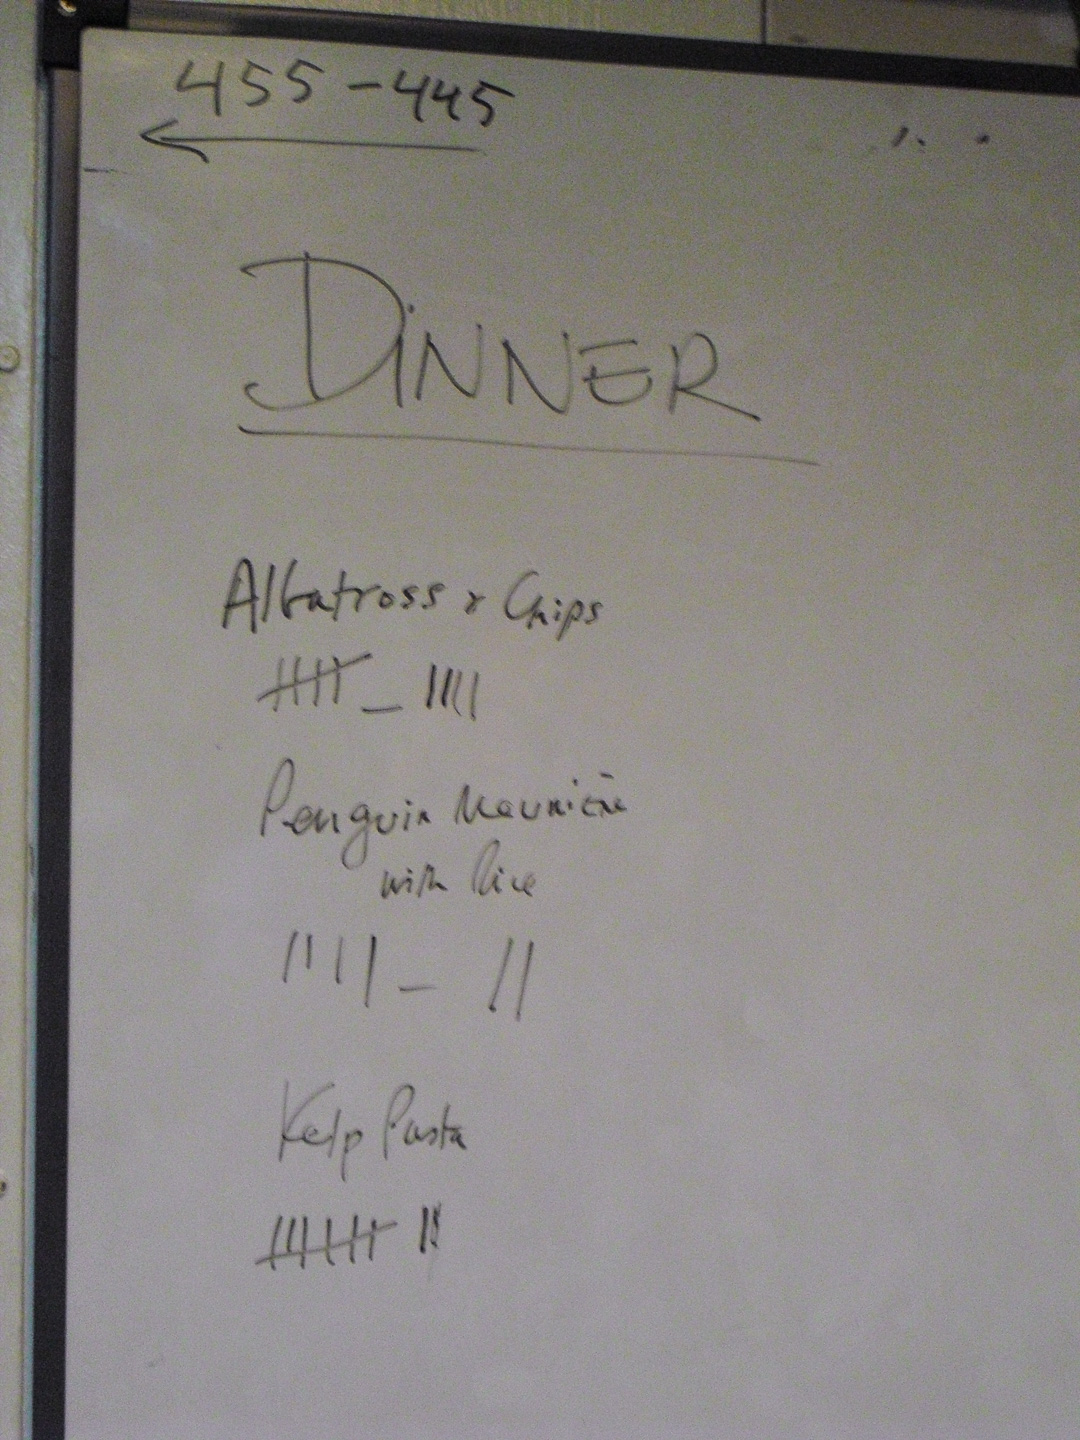 455-445
DiNNER
Albatross & Chips
Penguin Meunière
with Rice
Kelp Pasta